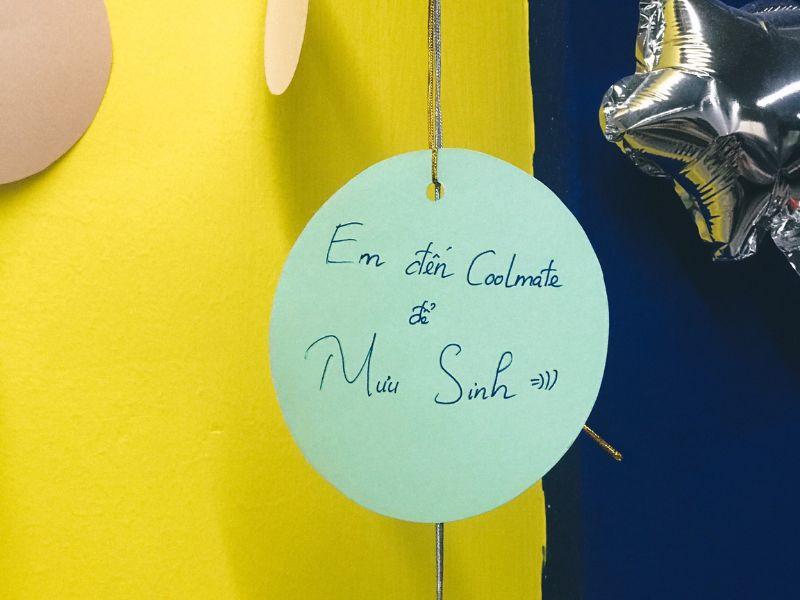 Em đến Coolmate
để
Mưu Sinh =)))